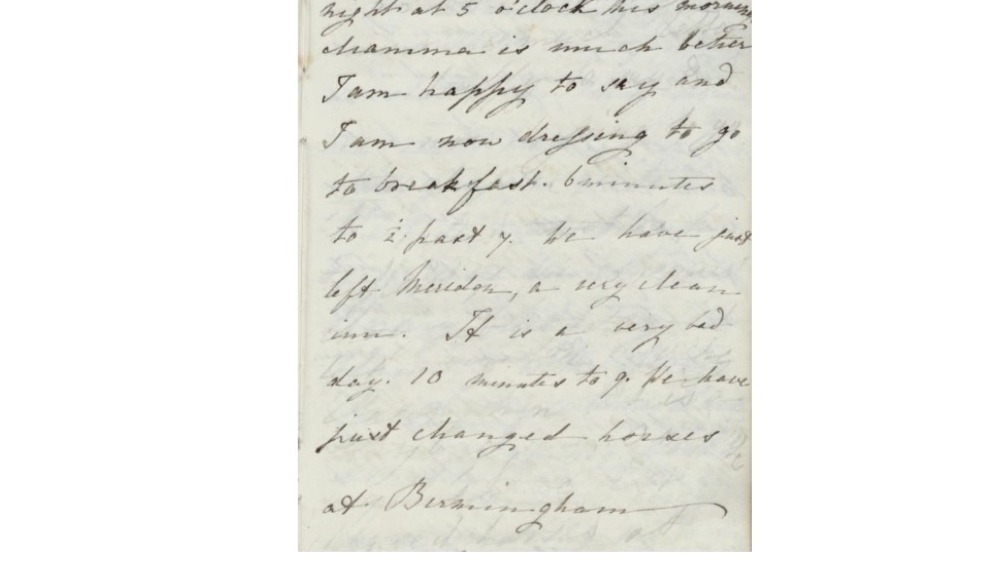 night at 5 o'clock this morning
Mamma is much better
I am happy to say and
I am now dressing to go
to breakfast. 6 minutes
to ½ past 7. We have just
left Meridon, a very clean
inn. It is a very bad
day. 10 minutes to 9. We have
just changed horses
at Birmingham